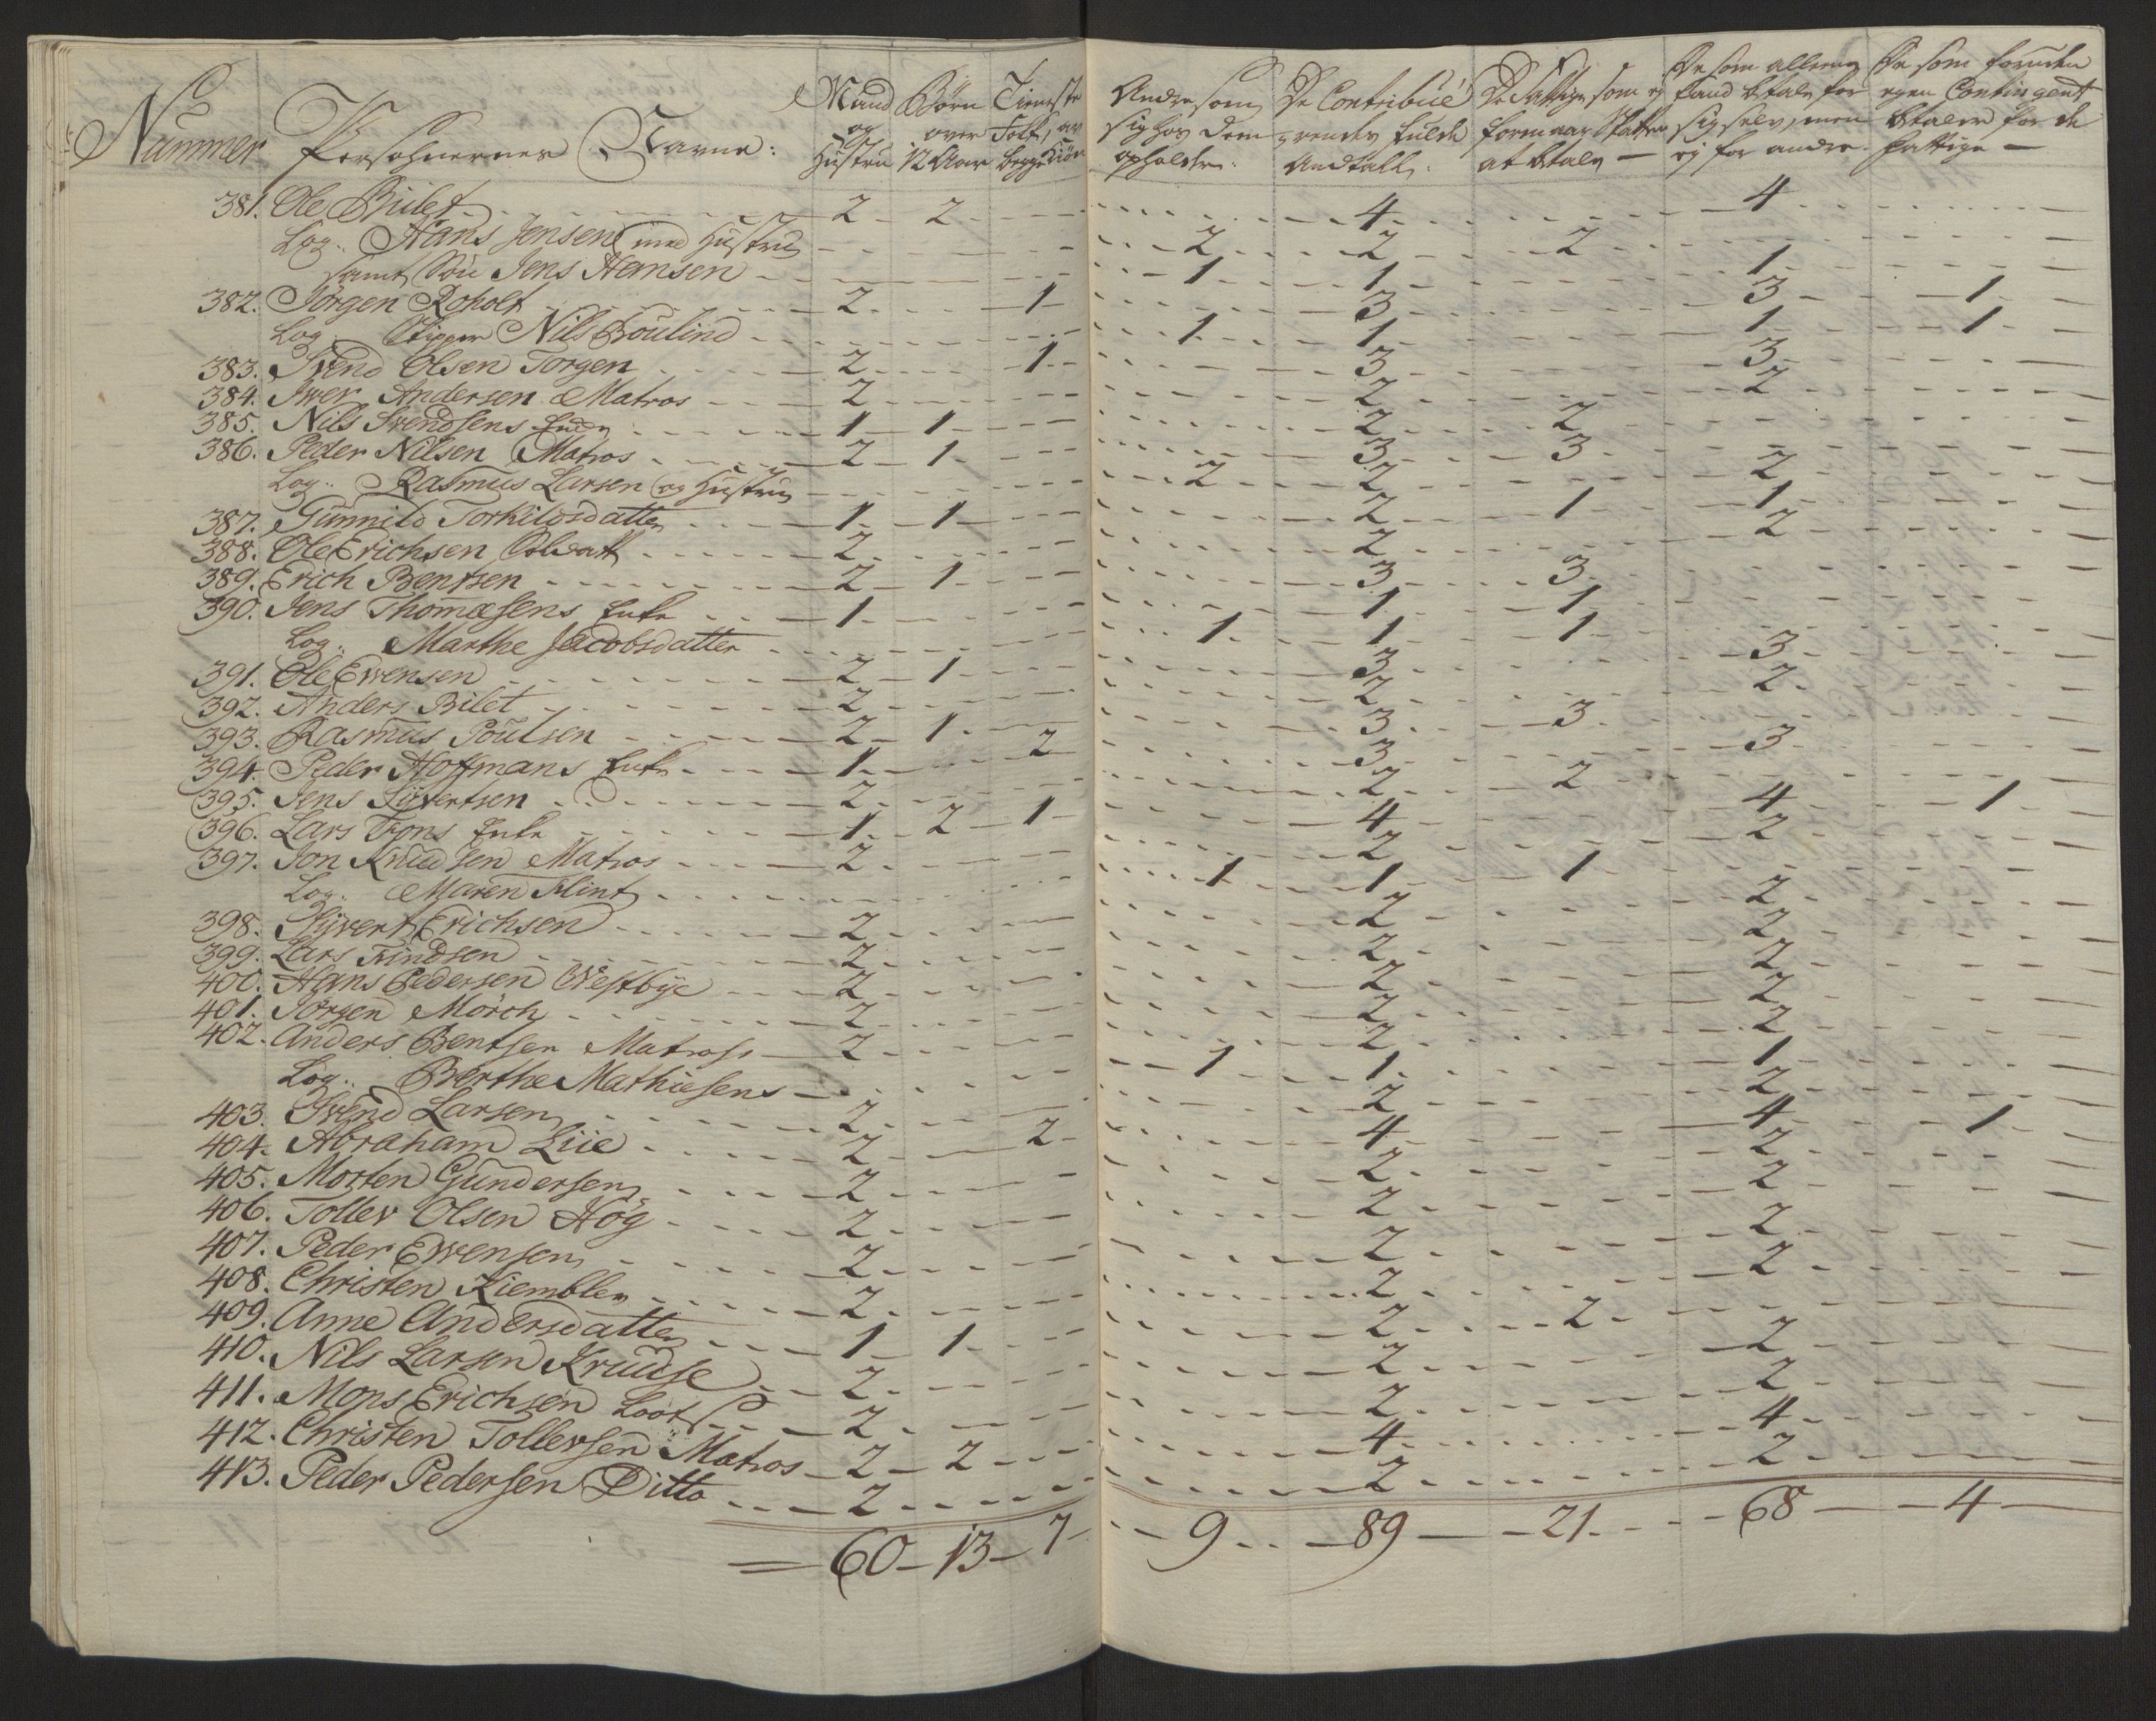 Nummer Persohnernes Navne: Mand og Hustru Børn over 12 Aar Tieneste Folk, av begge Kiøn Andre som sig hos dem opholder. De Contribue-rendes fulde Andtall. De Fattige som ej formaar Skatten at betale — De som allene kand betale for sig selv, men ej for andre. De som foruden egen Contingent betaler for de fattige —
381. Ole Builet 2 2 4 4
Log: Hans Jensen med Hustrue 2 2 2
samt Søn Jens Hansen 1 1 1
382. Jørgen Roholt 2 1 3 3 1
Log: Skipper Nils Boulind 1 1 1 1
383. Svend Olsen Torgen 2 1 3 3
384. Iver Andersen Matros 2 2 2
385. Nils Svendsens Enke 1 1 2 2
386. Peder Nilsen Matros 2 1 3 3
Log: Rasmus Larsen og Hustrue 2 2 2
387. Gunnild Torkildsdatter 1 1 2 1 1
388. Ole Erichsen Soldat 2 2 2
389. Erich Bentsen 2 1 3 3
390. Jens Thomæsens Enke 1 1 1
Log: Marthe Jacobsdatter 1 1 1
391. Ole Evensen 2 1 3 3
392. Anders Bilet 2 2 2
393. Rasmus Poulsen 2 1 3 3
394. Peder Hoffmans Enke 1 2 3 3
395. Jens Syvertsen 2 2 2
396. Lars Trons Enke 1 2 1 4 4 1
397. Jon Knudsen Matros 2 2 2
Log: Maren Flint 1 1 1
398. Syvert Erichsen 2 2 2
399. Lars Findsen 2 2 2
400. Hans Pedersen Westbye 2 2 2
401. Jörgen Mörch 2 2 2
402. Anders Bentsen Matross 2 2 2
Log: Berthe Mathiesens 1 1 1
403. Svend Larsen 2 2 2
404. Abraham Liie 2 2 4 4 1
405. Morten Gundersen 2 2 2
406. Tollev Olsen Hög 2 2 2
407. Peder Evensen 2 2 2
408. Christen Kiembler 2 2 2
409. Anne Andersdatter 1 1 2 2
410. Nils Larsen Kruuse 2 2 2
411. Mons Erichsen Loots 2 2 2
412. Christen Tollevsen Matros 2 2 4 4
413. Peder Pedersen Ditto 2 2 2
60 13 7 9 89 21 68 4